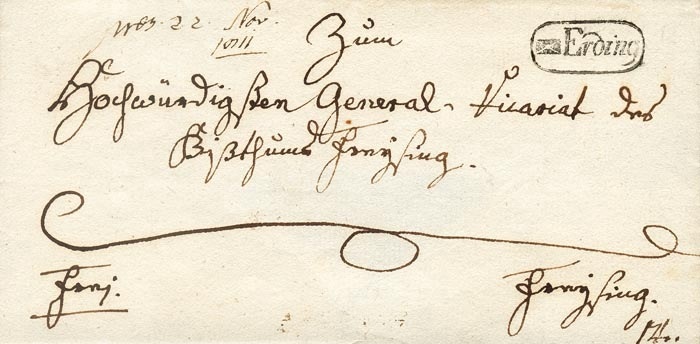 22 Nov.
1811
Erding
Zum
Hochwürdigsten General-Vicariat des
Bißthums Freysing.
Frei.
Freysing.